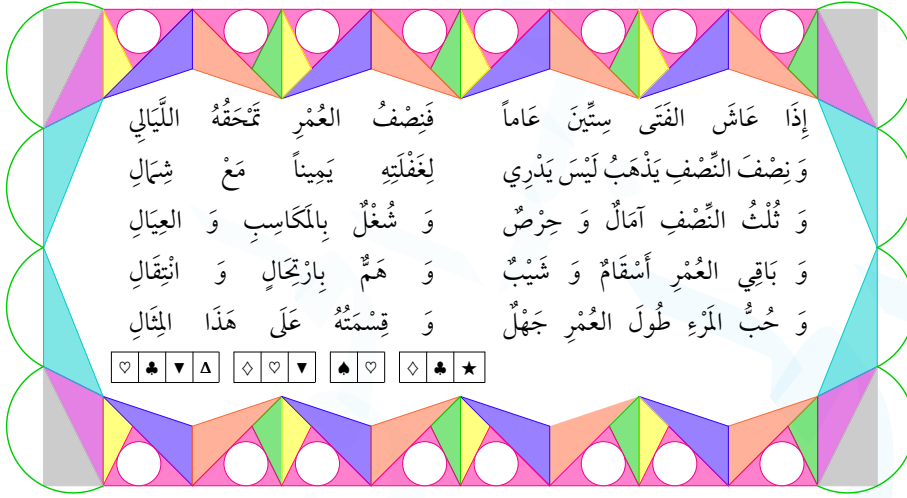 إِذَا عَاشَ الفَتَى سِتِّينَ عَاماً فَنِصْفُ العُمْرِ تَمْحَقُهُ اللَّيَالِي
وَ نِصْفَ النِّصْفِ يَذْهَبُ لَيْسَ يَدْرِي لِغَفْلَتِهِ يَمِيناً مَعْ شِمَالِ
وَ ثُلْثُ النِّصْفِ آمَالٌ وَ حِرْصٌ وَ شُغْلٌ بِالمَكَاسِبِ وَ العِيَالِ
وَ بَاقِي العُمْرِ أَسْقَامٌ وَ شَيْبٌ وَ هَمٌّ بِارْتِحَالٍ وَ انْتِقَالِ
وَ حُبُّ المَرْءِ طُولَ العُمْرِ جَهْلٌ وَ قِسْمَتُهُ عَلَى هَذَا المِثَالِ